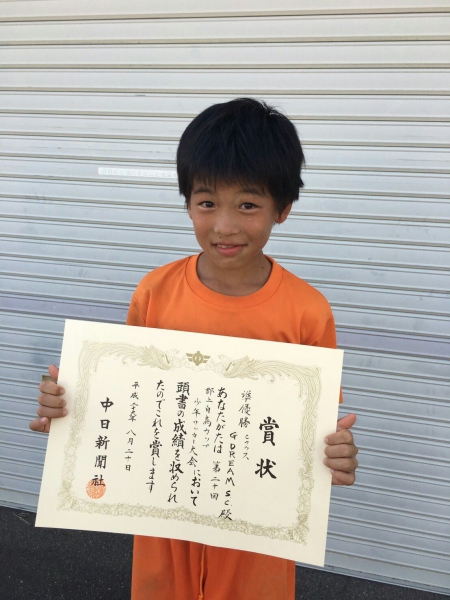 賞状
準優勝
GDREAM SC 殿
あなたがたは
第二十回
郡上白鳥カップ
少年サッカー大会において
頭書の成績を収められ
たのでこれを賞します
八月二十日
中日新聞社